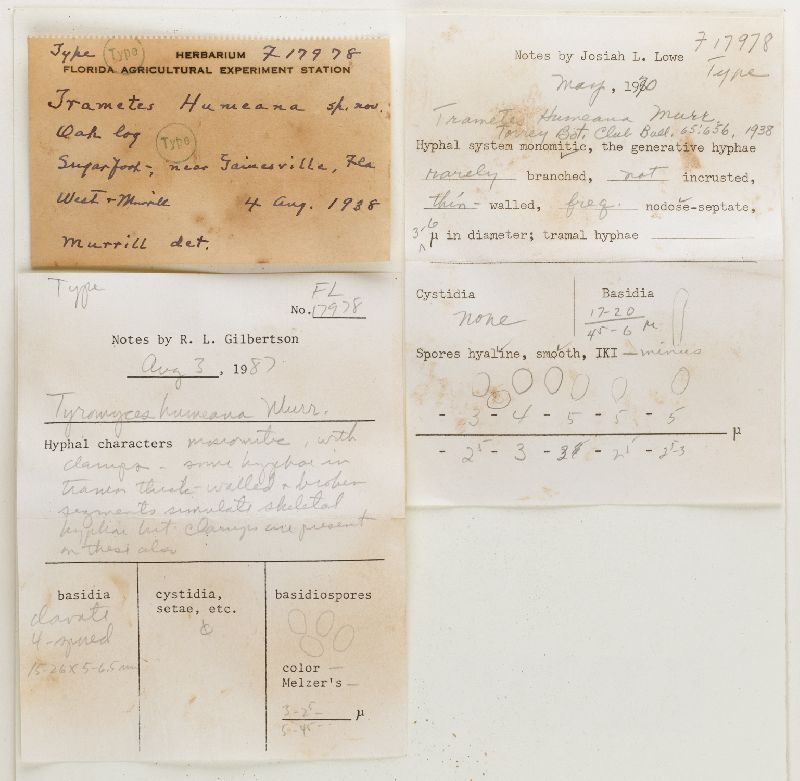 Type Type HERBARIUM F 17978
FLORIDA AGRICULTURAL EXPERIMENT STATION
Trametes Humeana sp. nov.
Oak log
Type
Sugarfoot, near Gainesville, Fla
West & Murrill 4 Aug. 1938
Murrill det.
Type
FL
No. 17978
Notes by R. L. Gilbertson
Aug 3, 1987
Tyromyces humeana Murr.
Hyphal characters monomitic, with
clamps - some hyphae in
trama thick-walled & broken
segments simulate skeletal
hyphae but clamps are present
on these also
basidia
clavate
4-spored
15-26 x 5-6.5
cystidia,
setae, etc.
basidiospores
color —
Melzer's —
μ
F 17978
Notes by Josiah L. Lowe
Type
May, 1970
Trametes Humeana Murr.
Torrey Bot. Club Bull. 65:656, 1938
Hyphal system monomitic, the generative hyphae
rarely branched, not incrusted,
thin- walled, freq. nodose-septate,
3-6 μ in diameter; tramal hyphae
Cystidia Basidia
none 17-20
45-6 μ
Spores hyaline, smooth, IKI — minus
- 3 - 4 - 5 - 5 - 5
μ